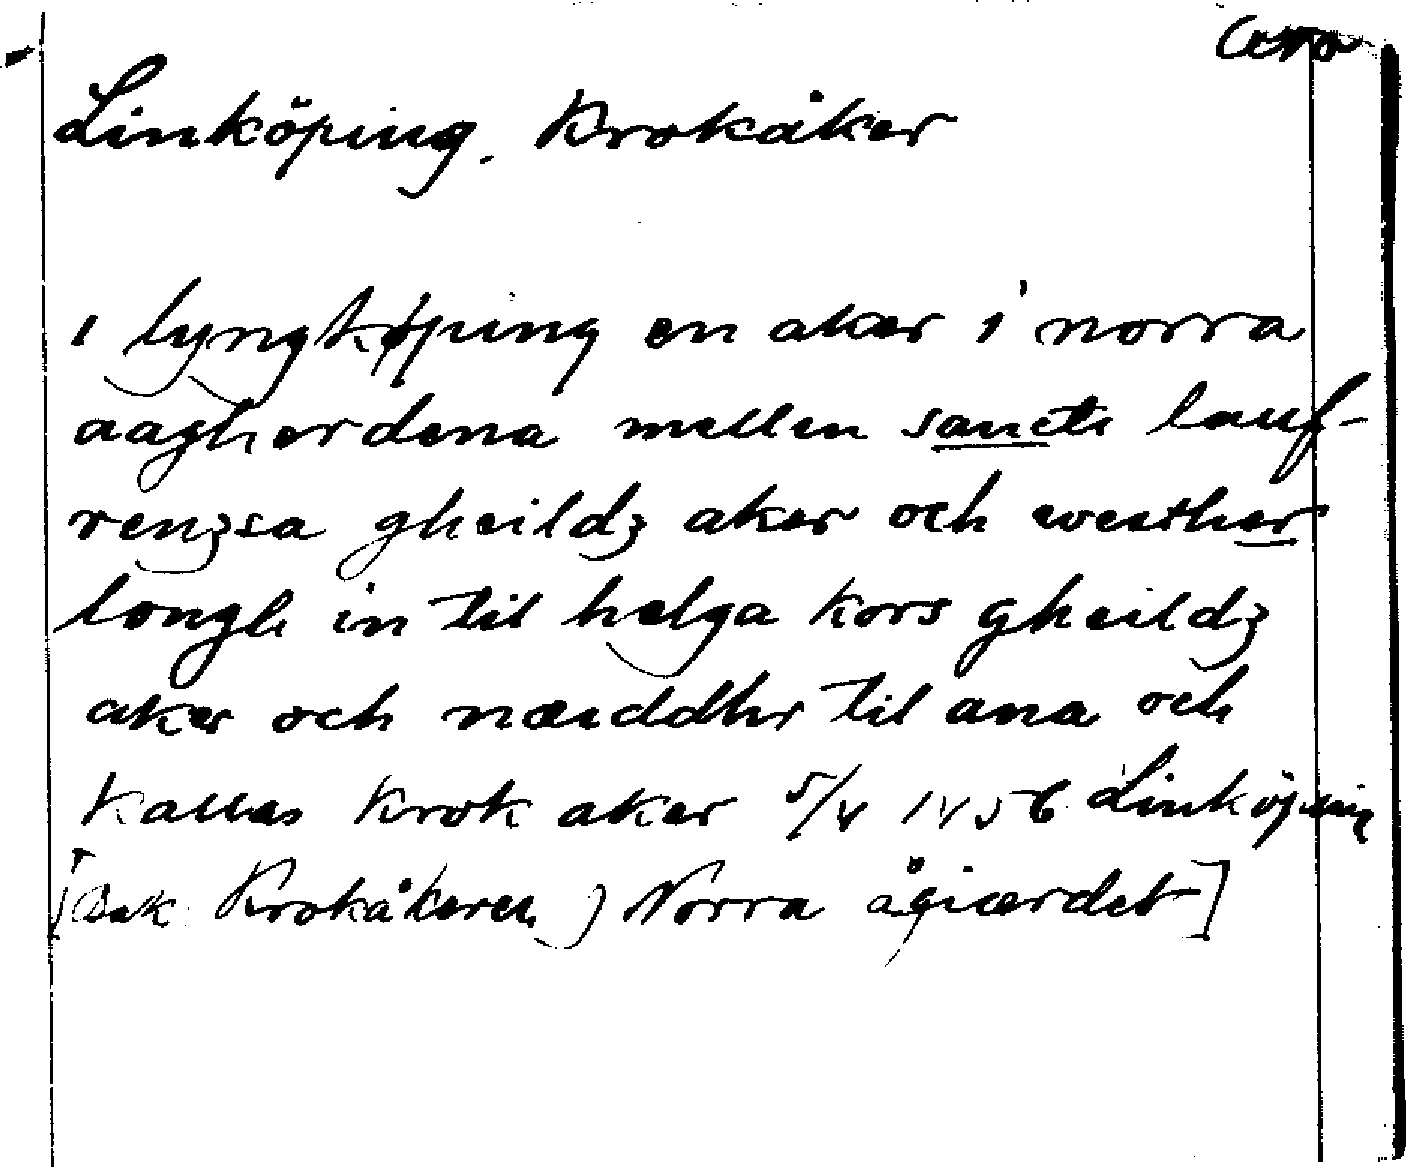 Linköping. Krokåker
i lyngkøping en aker i norra
aagherdena mellen sancte lauf-
renzsa gheildz aker och wæsther
longh in til helga kors gheildz
aker och næddhr til ana och
kallas krok aker 5/4 1456 Linköping
[Bak: Krokåkeren, Norra ågiærdet]